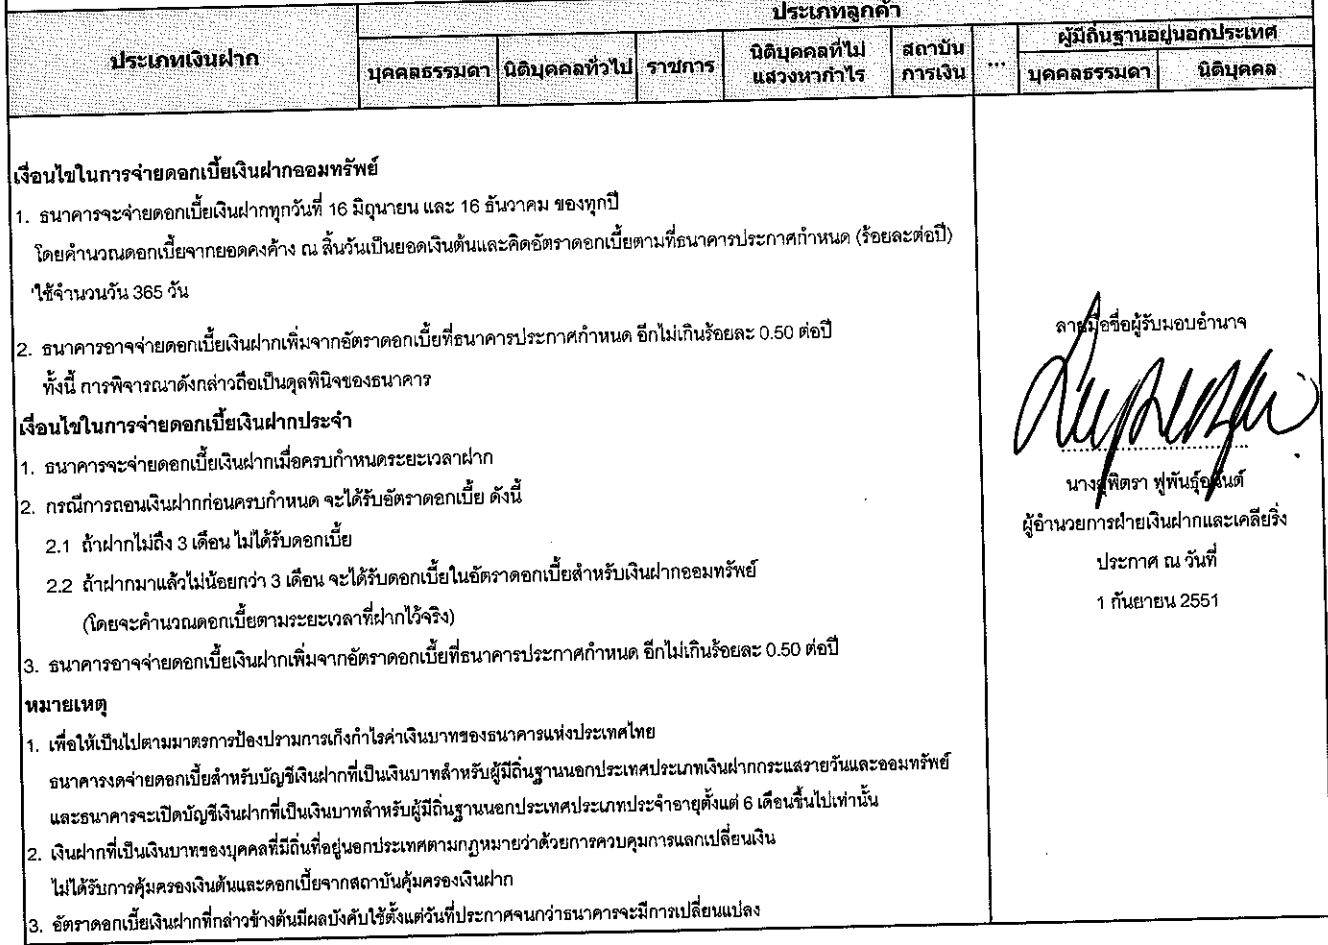 ประเภทลูกค้า
ประเภทเงินฝาก บุคคลธรรมดา นิติบุคคลทั่วไป ราชการ นิติบุคคลที่ไม่แสวงหากำไร สถาบันการเงิน ... ผู้มีถิ่นฐานอยู่นอกประเทศ
บุคคลธรรมดา นิติบุคคล
เงื่อนไขในการจ่ายดอกเบี้ยเงินฝากออมทรัพย์
1. ธนาคารจะจ่ายดอกเบี้ยเงินฝากทุกวันที่ 16 มิถุนายน และ 16 ธันวาคม ของทุกปี
โดยคำนวณดอกเบี้ยจากยอดคงค้าง ณ สิ้นวันเป็นยอดเงินต้นและคิดอัตราดอกเบี้ยตามที่ธนาคารประกาศกำหนด (ร้อยละต่อปี)
'ใช้จำนวนวัน 365 วัน
2. ธนาคารอาจจ่ายดอกเบี้ยเงินฝากเพิ่มจากอัตราดอกเบี้ยที่ธนาคารประกาศกำหนด อีกไม่เกินร้อยละ 0.50 ต่อปี
ทั้งนี้ การพิจารณาดังกล่าวถือเป็นดุลพินิจของธนาคาร
เงื่อนไขในการจ่ายดอกเบี้ยเงินฝากประจำ
1. ธนาคารจะจ่ายดอกเบี้ยเงินฝากเมื่อครบกำหนดระยะเวลาฝาก
2. กรณีการถอนเงินฝากก่อนครบกำหนด จะได้รับอัตราดอกเบี้ย ดังนี้
2.1 ถ้าฝากไม่ถึง 3 เดือน ไม่ได้รับดอกเบี้ย
2.2 ถ้าฝากมาแล้วไม่น้อยกว่า 3 เดือน จะได้รับดอกเบี้ยในอัตราดอกเบี้ยสำหรับเงินฝากออมทรัพย์
(โดยจะคำนวณดอกเบี้ยตามระยะเวลาที่ฝากไว้จริง)
3. ธนาคารอาจจ่ายดอกเบี้ยเงินฝากเพิ่มจากอัตราดอกเบี้ยที่ธนาคารประกาศกำหนด อีกไม่เกินร้อยละ 0.50 ต่อปี
หมายเหตุ
1. เพื่อให้เป็นไปตามมาตรการป้องปรามการเก็งกำไรค่าเงินบาทของธนาคารแห่งประเทศไทย
ธนาคารงดจ่ายดอกเบี้ยสำหรับบัญชีเงินฝากที่เป็นเงินบาทสำหรับผู้มีถิ่นฐานนอกประเทศประเภทเงินฝากกระแสรายวันและออมทรัพย์
และธนาคารจะเปิดบัญชีเงินฝากที่เป็นเงินบาทสำหรับผู้มีถิ่นฐานนอกประเทศประเภทประจำอายุตั้งแต่ 6 เดือนขึ้นไปเท่านั้น
2. เงินฝากที่เป็นเงินบาทของบุคคลที่มีถิ่นที่อยู่นอกประเทศตามกฎหมายว่าด้วยการควบคุมการแลกเปลี่ยนเงิน
ไม่ได้รับการคุ้มครองเงินต้นและดอกเบี้ยจากสถาบันคุ้มครองเงินฝาก
3. อัตราดอกเบี้ยเงินฝากที่กล่าวข้างต้นมีผลบังคับใช้ตั้งแต่วันที่ประกาศจนกว่าธนาคารจะมีการเปลี่ยนแปลง
ลายมือชื่อผู้รับมอบอำนาจ
นางสุพิตรา ฟูพันธุ์อนันต์
ผู้อำนวยการฝ่ายเงินฝากและเคลียริ่ง
ประกาศ ณ วันที่
1 กันยายน 2551